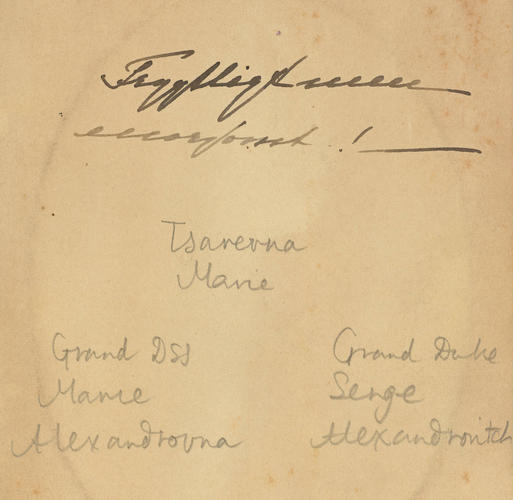 Frygtligt men
morsomt!
Tsarevna
Marie
Grand Dss
Marie
Alexandrovna
Grand Duke
Serge
Alexandrovitch